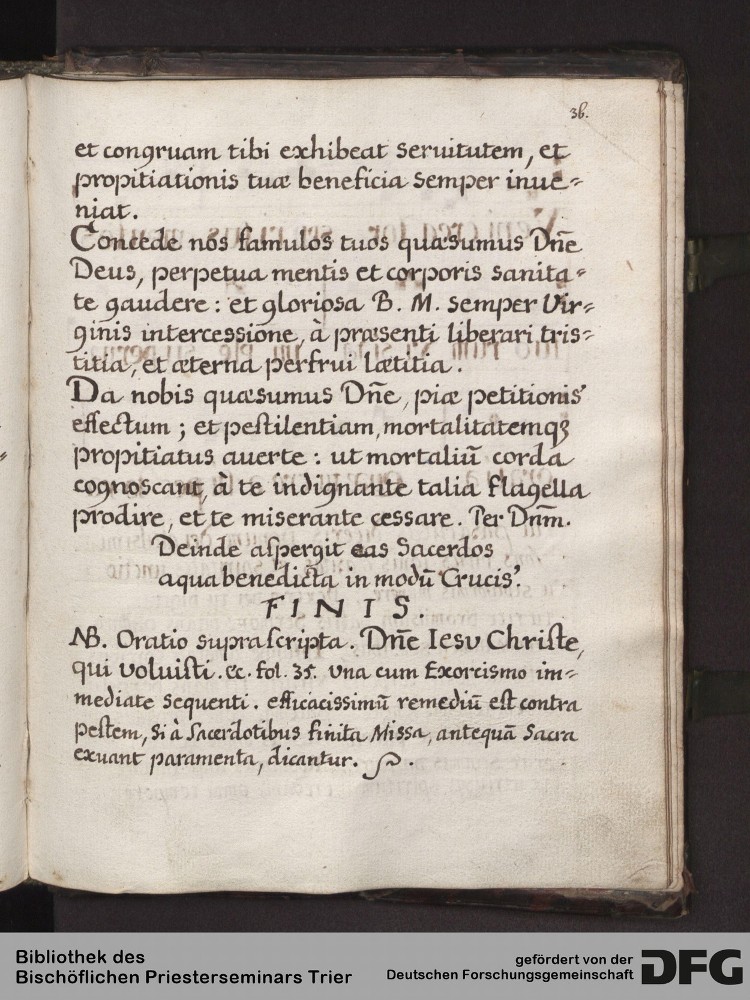 36.
et congruam tibi exhibeat servitutem, et
propitiationis tuæ beneficia semper inve=
niat.
Concede nos famulos tuos quæsumus Dñe
Deus, perpetua mentis et corporis sanita=
te gaudere: et gloriosa B. M. semper Vir=
ginis intercessione, à præsenti liberari tris=
titia, et æterna perfrui lætitia.
Da nobis quæsumus Dñe, piæ petitionis
effectum; et peſtilentiam, mortalitatemqꝫ
propitiatus auerte: ut mortaliũ corda
cognoscant, à te indignante talia flagella
prodire, et te miserante cessare. Per Dnm̃.
Deinde aſpergit eas Sacerdos
aqua benedicta in modũ Crucis.
FINIS.
NB. Oratio supraſcripta. Dñe Iesu Christe,
qui voluiſti. ec. fol. 35. una cum Exorcismo im=
mediate sequenti. efficacissimũ remediũ eſt contra
peſtem, si à Sacerdotibus finita Missa, antequã Sacra
exuant paramenta, dicantur.
Bibliothek des
Bischöflichen Priesterseminars Trier
gefördert von der
Deutschen Forschungsgemeinschaft
DFG